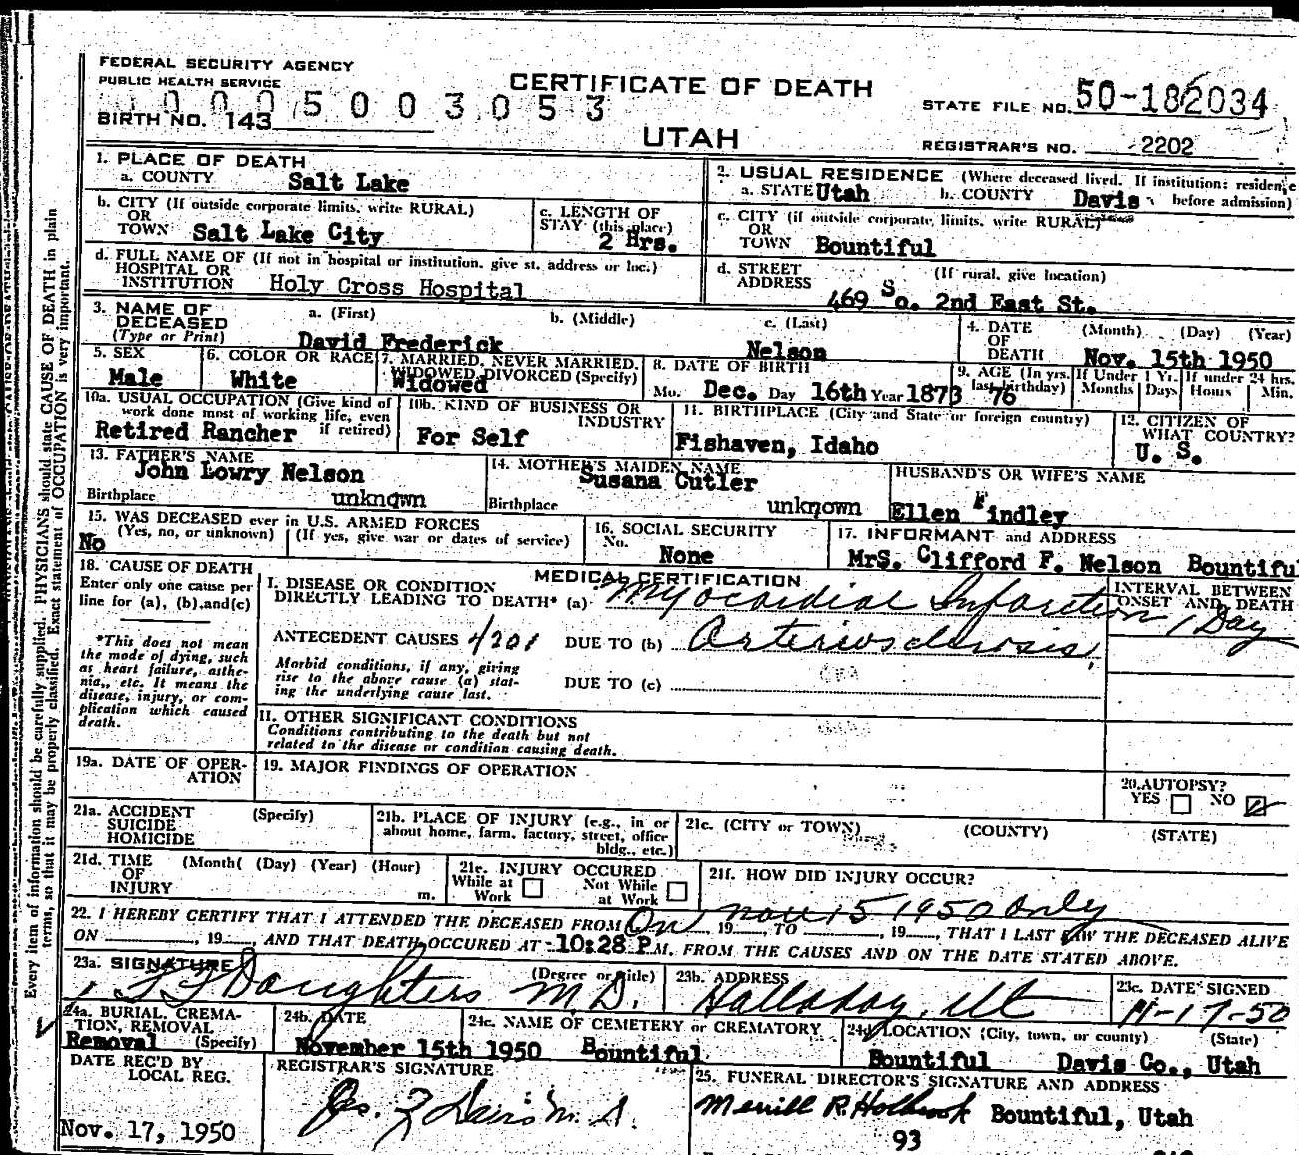 FEDERAL SECURITY AGENCY
PUBLIC HEALTH SERVICE
CERTIFICATE OF DEATH
UTAH
0 0 0 5 0 0 3 0 5 3
BIRTH NO. 143
STATE FILE NO. 50-182034
REGISTRAR'S NO. 2202
1. PLACE OF DEATH
a. COUNTY Salt Lake
2. USUAL RESIDENCE (Where deceased lived. If institution: residence
a. STATE Utah b. COUNTY Davis before admission)
b. CITY (If outside corporate limits, write RURAL)
OR
TOWN Salt Lake City
c. LENGTH OF
STAY (this place)
2 Hrs.
c. CITY (if outside corporate, limits, write RURAL)
OR
TOWN Bountiful
d. FULL NAME OF (If not in hospital or institution, give st. address or loc.)
HOSPITAL OR
INSTITUTION Holy Cross Hospital
d. STREET (If rural, give location)
ADDRESS
469 So. 2nd East St.
3. NAME OF a. (First) b. (Middle) c. (Last)
DECEASED
(Type or Print) David Frederick Nelson
4. DATE (Month) (Day) (Year)
OF
DEATH Nov. 15th 1950
5. SEX
Male
6. COLOR OR RACE
White
7. MARRIED, NEVER MARRIED,
WIDOWED, DIVORCED (Specify)
Widowed
8. DATE OF BIRTH
Mo. Dec. Day 16th Year 1873
9. AGE (In yrs. last birthday) 76
If Under 1 Yr. Months Days
If under 24 hrs. Hours Min.
10a. USUAL OCCUPATION (Give kind of
work done most of working life, even
if retired)
Retired Rancher
10b. KIND OF BUSINESS OR
INDUSTRY
For Self
11. BIRTHPLACE (City and State or foreign country)
Fishaven, Idaho
12. CITIZEN OF
WHAT COUNTRY?
U. S.
13. FATHER'S NAME
John Lowry Nelson
Birthplace unknown
14. MOTHER'S MAIDEN NAME
Susana Cutler
Birthplace unknown
HUSBAND'S OR WIFE'S NAME
Ellen Findley
15. WAS DECEASED ever in U.S. ARMED FORCES
(Yes, no, or unknown) (If yes, give war or dates of service)
No
16. SOCIAL SECURITY
No.
None
17. INFORMANT and ADDRESS
MrS. Clifford F. Nelson Bountiful
18. CAUSE OF DEATH
Enter only one cause per
line for (a), (b),and(c)
*This does not mean
the mode of dying, such
as heart failure, asthe-
nia,, etc. It means the
disease, injury, or com-
plication which caused
death.
MEDICAL CERTIFICATION
I. DISEASE OR CONDITION
DIRECTLY LEADING TO DEATH* (a) Myocardial Infarction
INTERVAL BETWEEN
ONSET AND DEATH
1 Day
ANTECEDENT CAUSES 4201 DUE TO (b) Arteriosclerosis
Morbid conditions, if any, giving
rise to the above cause (a) stat-
ing the underlying cause last.
DUE TO (c)
II. OTHER SIGNIFICANT CONDITIONS
Conditions contributing to the death but not
related to the disease or condition causing death.
19a. DATE OF OPER-
ATION
19. MAJOR FINDINGS OF OPERATION
20. AUTOPSY?
YES NO
21a. ACCIDENT (Specify)
SUICIDE
HOMICIDE
21b. PLACE OF INJURY (e.g., in or
about home, farm, factory, street, office
bldg., etc.)
21c. (CITY or TOWN) (COUNTY) (STATE)
21d. TIME (Month( (Day) (Year) (Hour)
OF
INJURY m.
21e. INJURY OCCURED
While at Work Not While at Work
21f. HOW DID INJURY OCCUR?
22. I HEREBY CERTIFY THAT I ATTENDED THE DECEASED FROM On Nov 15 1950 only 19 , TO , 19 , THAT I LAST SAW THE DECEASED ALIVE
ON , 19 , AND THAT DEATH OCCURED AT 10:28 P.M. FROM THE CAUSES AND ON THE DATE STATED ABOVE.
23a. SIGNATURE (Degree or title)
Daughters M.D.
23b. ADDRESS
Halladay, Ut
23c. DATE SIGNED
11-17-50
24a. BURIAL, CREMA-
TION, REMOVAL
(Specify)
Removal
24b. DATE
November 15th 1950
24c. NAME OF CEMETERY or CREMATORY
Bountiful
24d. LOCATION (City, town, or county) (State)
Bountiful Davis Co., Utah
DATE REC'D BY
LOCAL REG.
Nov. 17, 1950
REGISTRAR'S SIGNATURE
25. FUNERAL DIRECTOR'S SIGNATURE AND ADDRESS
Merrill R. Holbrook Bountiful, Utah
93
Every item of information should be carefully supplied. PHYSICIANS should state CAUSE OF DEATH in plain
terms, so that it may be properly classified. Exact statement of OCCUPATION is very important.